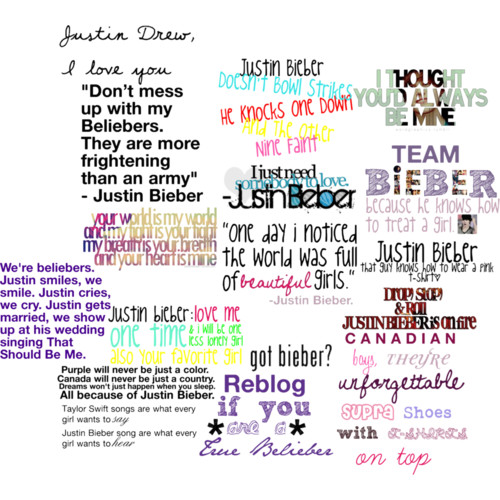 Justin Drew,
I love you
"Don't mess
up with my
Beliebers.
They are more
frightening
than an army"
- Justin Bieber
your world is my world
and my fight is your fight
my breath is your breath
and your heart is mine
We're beliebers.
Justin smiles, we
smile. Justin cries,
we cry. Justin gets
married, we show
up at his wedding
singing That
Should Be Me.
Justin Bieber
Doesn't Bowl Strikes
He Knocks One Down
And The Other
Nine Faint
I just need
somebody to love.
-Justin Bieber
"One day i noticed
the world was full
of beautiful girls."
-Justin Bieber.
justin bieber: love me
one time & i will be one
less lonely girl
also your favorite girl
got bieber?
Purple will never be just a color.
Canada will never be just a country.
Dreams won't just happen when you sleep.
All because of Justin Bieber.
Taylor Swift songs are what every
girl wants to say
Justin Bieber song are what every
girl wants to hear
Reblog
if you
*are a*
True Belieber
I THOUGHT
YOU'D ALWAYS
BE MINE
TEAM
BIEBER
because he knows how
to treat a girl.
Justin Bieber
that guy knows how to wear a pink
t-shirt♡
DROP, STOP,
& ROLL
JUSTIN BIEBER is on fire
CANADIAN
boys, THEY'RE
unforgettable
SUPRA Shoes
with T-SHIRTS
on top